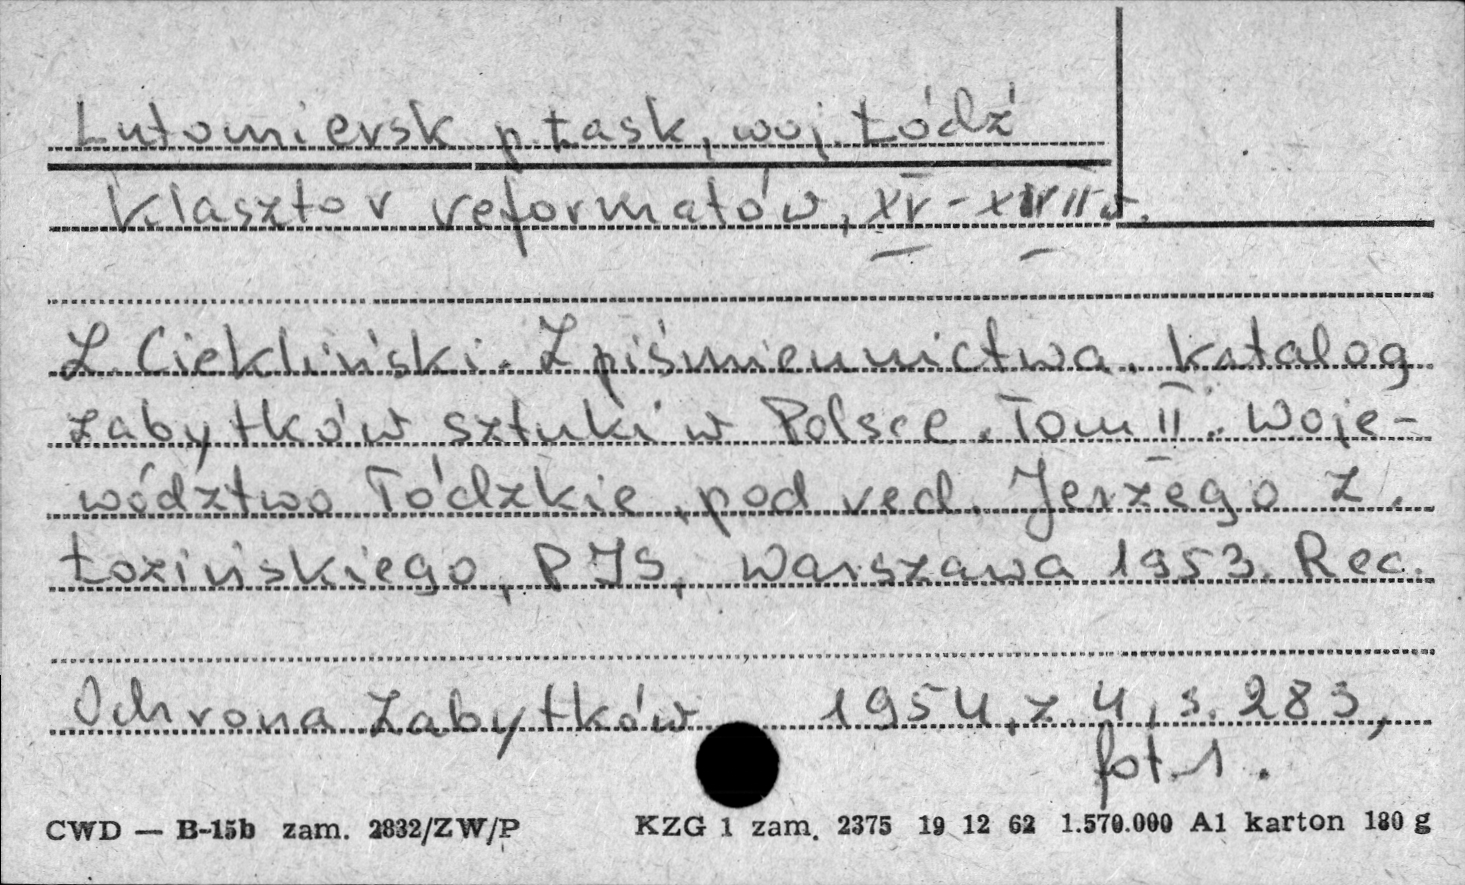 Lutomiersk p. Łask, woj. Łódź
Klasztor reformatów, XV-XVIII w.
Z. Ciekliński. Z piśmiennictwa. Katalog
zabytków sztuki w Polsce. Tom II. Woje-
wództwo Łódzkie, pod red. Jerzego Z.
Łozińskiego, PIS, Warszawa 1953. Rec.
Ochrona Zabytków 1954, z. 4, s. 283,
fot. 1.
CWD — B-15b zam. 2832/ZW/P KZG 1 zam. 2375 19 12 62 1.570.000 A1 karton 180 g